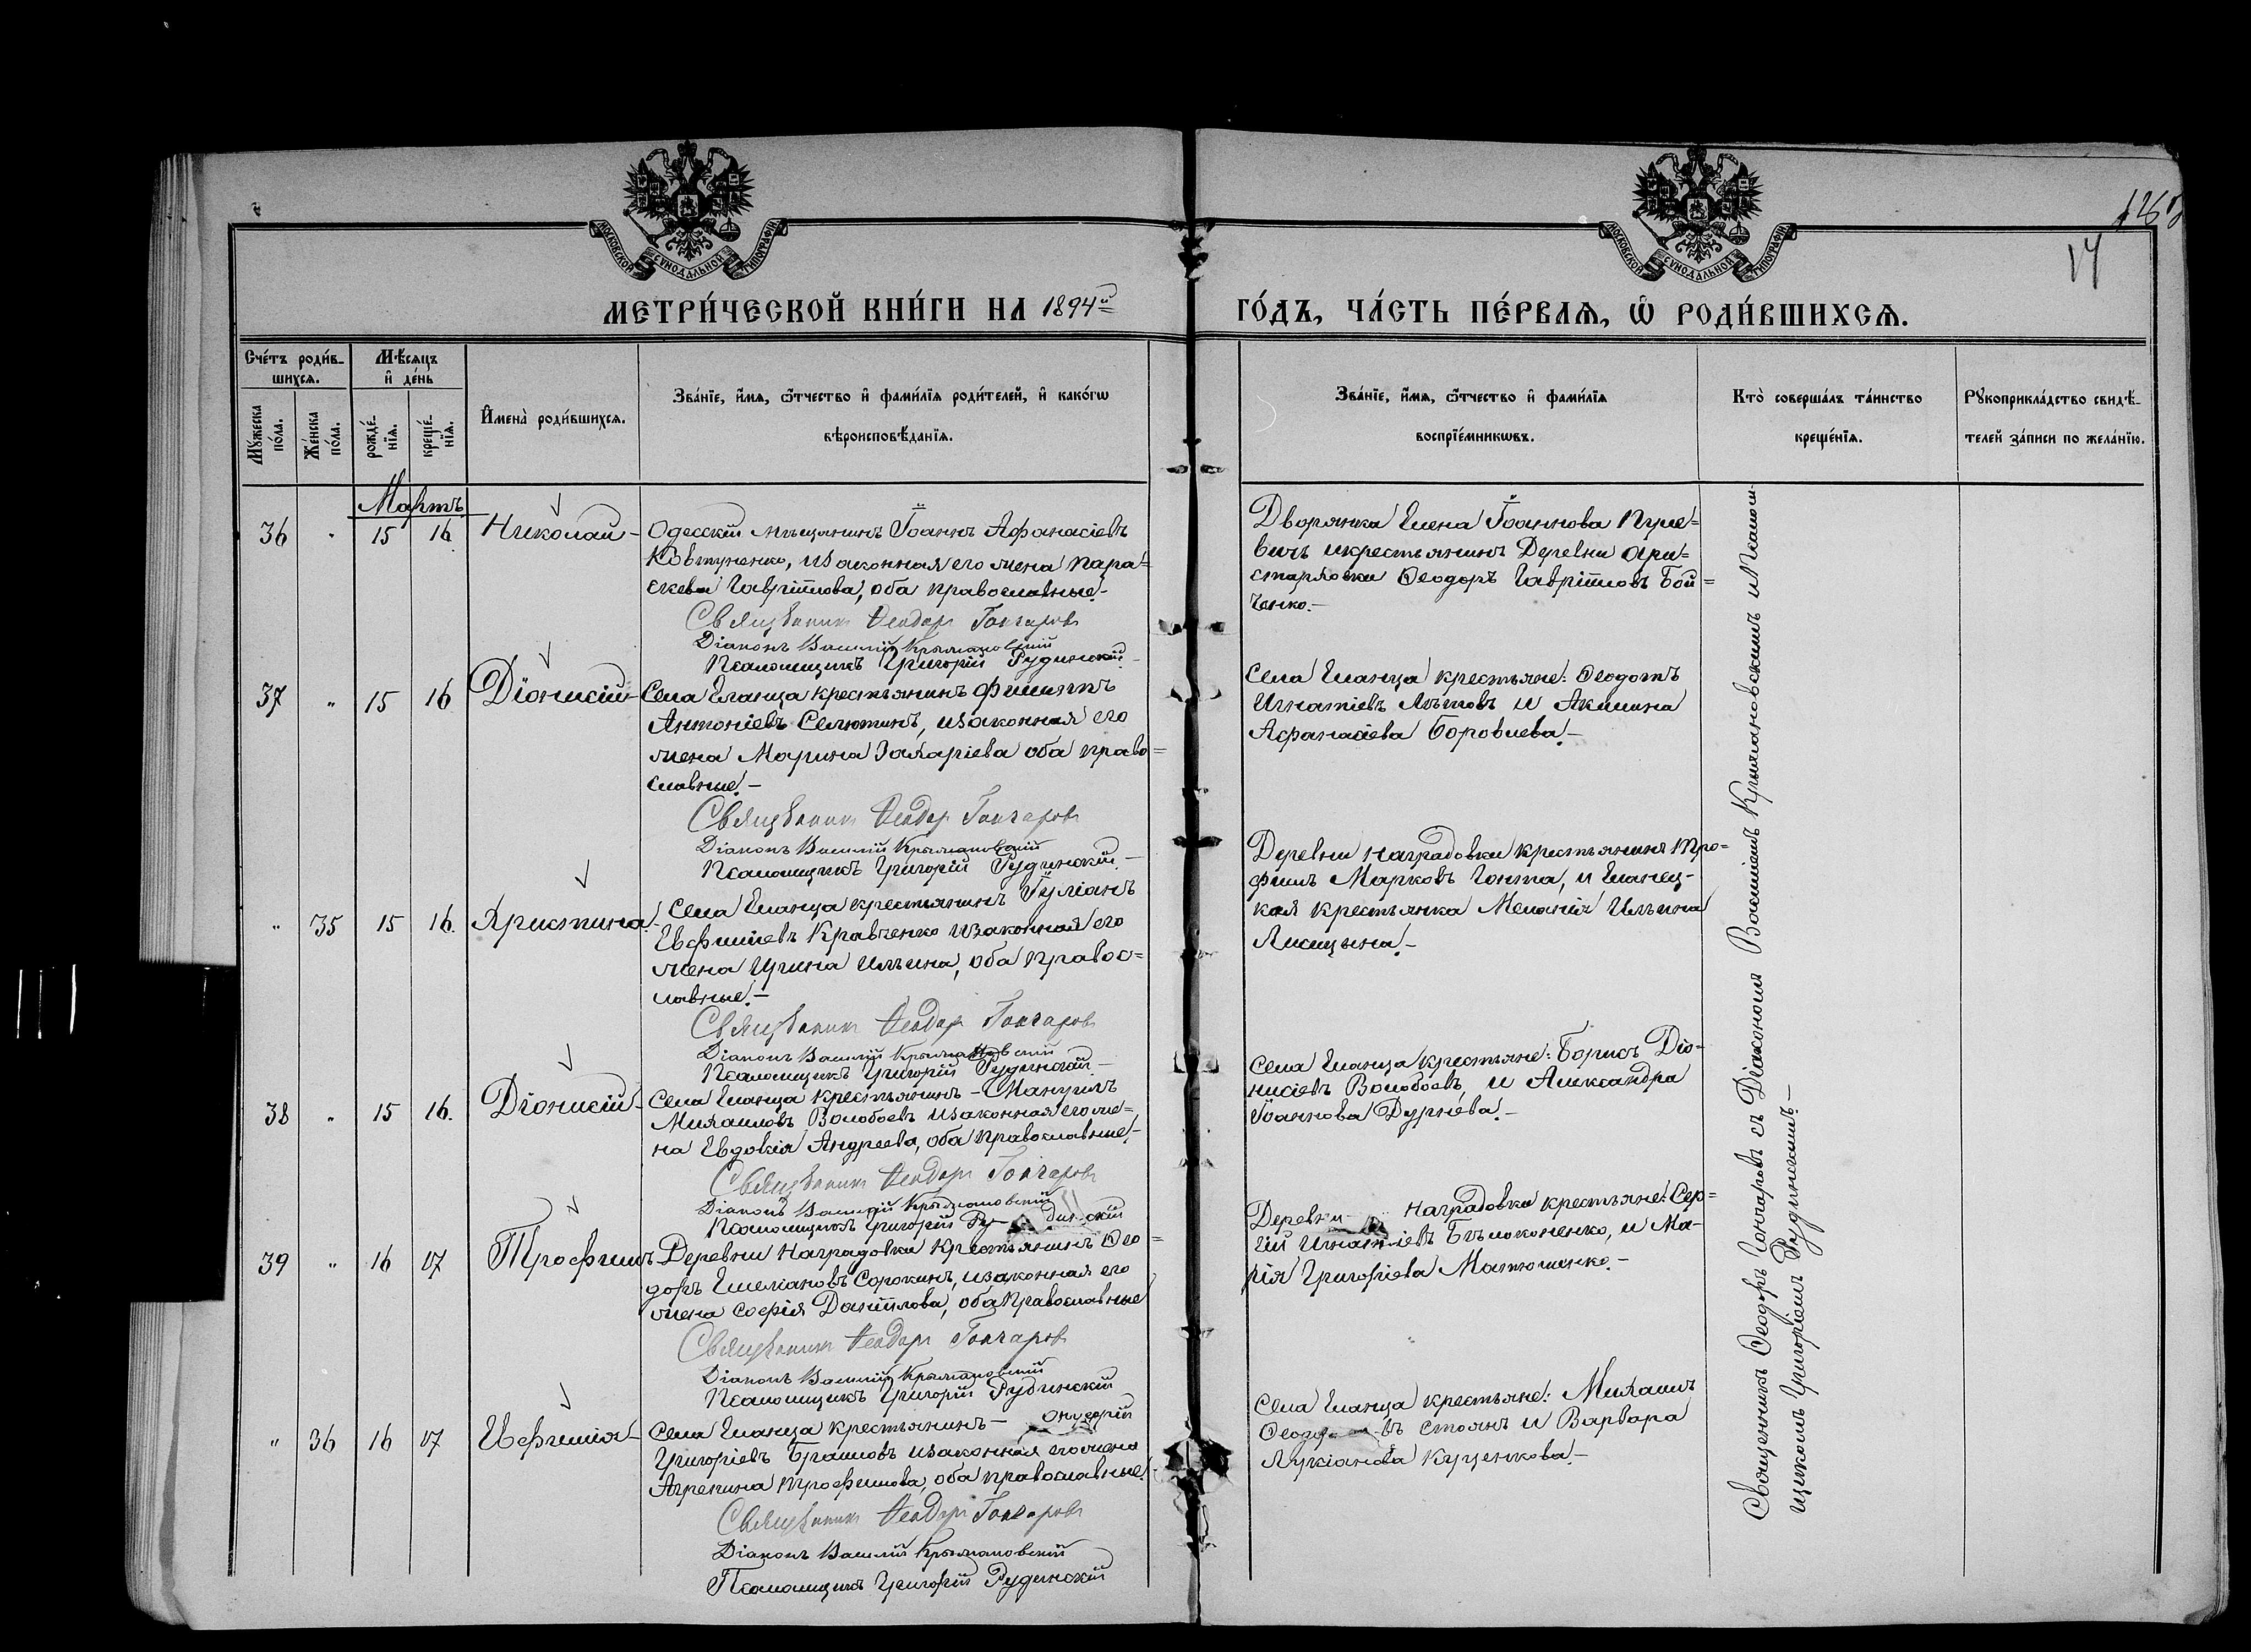 126
14
МОСКОВСКОЙ СѴНОДАЛЬНОЙ ТИПОГРАФІИ
МОСКОВСКОЙ СѴНОДАЛЬНОЙ ТИПОГРАФІИ
МЕТРИ́ЧЕСКОЙ КНИ́ГИ НА 1894й
ГО́ДЪ, ЧА́СТЬ ПЕ́РВАѦ, Ѡ҆ РОДИ́ВШИХСѦ.
Сче́тъ роди́в-
шихсѧ.
Мѣ́сѧцъ
и҆ де́нь
Мꙋ́жеска
по́ла.
Же́нска
по́ла.
рожде́-
нїѧ.
креще́-
нїѧ.
И҆мена̀ роди́вшихсѧ.
Зва́нїе, и҆́мѧ, ѻ҆́тчество и҆ фами́лїѧ роди́телей, и҆ како́гѡ
вѣроисповѣ́данїѧ.
Зва́нїе, и҆́мѧ, ѻ҆́тчество и҆ фами́лїѧ
воспрїе́мникѡвъ.
Кто̀ соверша́лъ та́инство
креще́нїѧ.
Рꙋкоприкла́дство свидѣ́-
телей за́писи по жела́нїю.
Мартъ
36 " 15 16 Николай -
Одесскій мѣщанинъ Іоаннъ Аѳанасіевъ
Ковтуненко, и законная его жена Пара=
скева Гавріилова, оба православные. -
Священникъ Ѳеодоръ Гончаровъ
Діаконъ Василій Крыжановскій
Псаломщикъ Григорій Рудинскій
Дворянка Елена Іоаннова
и крестьянинъ Деревни Ари=
старховки Ѳеодоръ Гавріиловъ Бой=
ченко. -
37 " 15 16 Діонисій -
Села Еланца крестьянинъ Филиппъ
Антоніевъ Селютинъ, и законная его
жена Марина Захаріева оба право=
славные. -
Священникъ Ѳеодоръ Гончаровъ
Діаконъ Василій Крыжановскій
Псаломщикъ Григорій Рудинскій -
Села Еланца крестьяне: Ѳеодотъ
Игнатіевъ Лѣтовъ и Акилина
Аѳанасіева Боровлева. -
" 35 15 16. Христина -
Села Еланца крестьянинъ Іуліанъ
Евфиміевъ Кравченко и законная его
жена Ирина Ильина, оба правос=
лавные. -
Священникъ Ѳеодоръ Гончаровъ
Діаконъ Василій Крыжановскій
Псаломщикъ Григорій Рудинскій -
Деревни Наградовки крестьянинъ Тро=
фимъ Марковъ Гонта, и Еланец-
кая крестьянка Меланія Ильина
Лисицына. -
38 " 15 16. Діонисій -
Села Еланца крестьянинъ - Мануилъ
Михаиловъ Волобоевъ и законная его же=
на Евдокія Андреева, оба православные. -
Священникъ Ѳеодоръ Гончаровъ
Діаконъ Василій Крыжановскій
Псаломщикъ Григорій Рудинскій
Села Еланца крестьяне: Борисъ Діо-
нисіевъ Волобоевъ, и Александра
Іоаннова Дурнева. -
39 " 16 17 Трофимъ
Деревни Наградовки крестьянинъ Ѳео=
доръ Емеліановъ Сорокинъ, и законная его
жена Софія Даніилова, оба православные
Священникъ Ѳеодоръ Гончаровъ
Діаконъ Василій Крыжановскій
Псаломщикъ Григорій Рудинскій
Деревни Наградовки крестьяне: Сер=
гій Игнатіевъ Бѣлоконенко, и Ма-
рія Григоріева Матюшенко. -
" 36 16 17 Евфимія -
Села Еланца крестьянинъ - Онуфрій
Григоріевъ Браиловъ и законная его жена
Агрепина Трофимова, оба православные.
Священникъ Ѳеодоръ Гончаровъ
Діаконъ Василій Крыжановскій
Псаломщикъ Григорій Рудинскій
Села Еланца крестьяне: Михаилъ
Ѳеодоровъ Стоянъ и Варвара
Лукіанова Куценкова. -
Священникъ Ѳеодоръ Гончаровъ съ Діакономъ Василіемъ Крыжановскимъ и Псалом-
щикомъ Григоріемъ Рудинскимъ. -